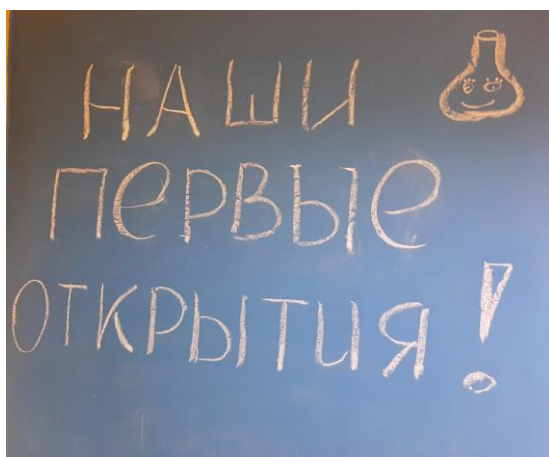 НАШИ
ПеРВЫе
ОТКРЫТИЯ!